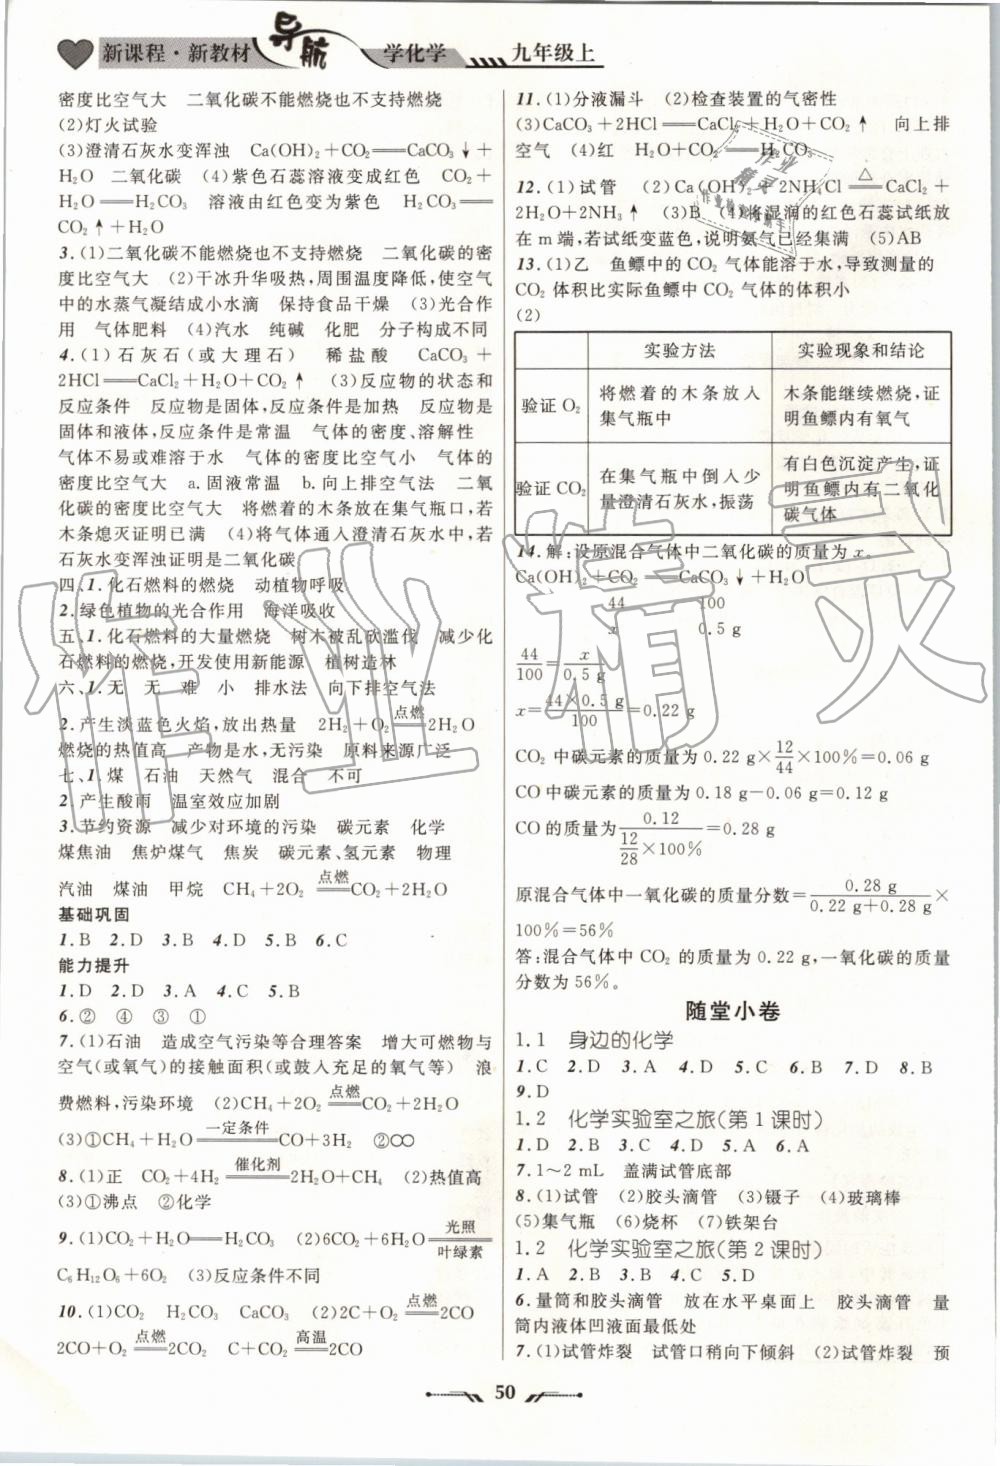 新课程·新教材 导航 学化学 九年级上
密度比空气大 二氧化碳不能燃烧也不支持燃烧
(2)灯火试验
(3)澄清石灰水变浑浊 Ca(OH)₂+CO₂══CaCO₃↓+
H₂O 二氧化碳 (4)紫色石蕊溶液变成红色 CO₂+
H₂O══H₂CO₃ 溶液由红色变为紫色 H₂CO₃══
CO₂↑+H₂O
3.(1)二氧化碳不能燃烧也不支持燃烧 二氧化碳的密
度比空气大 (2)干冰升华吸热,周围温度降低,使空气
中的水蒸气凝结成小水滴 保持食品干燥 (3)光合作
用 气体肥料 (4)汽水 纯碱 化肥 分子构成不同
4.(1)石灰石(或大理石) 稀盐酸 CaCO₃+
2HCl══CaCl₂+H₂O+CO₂↑ (3)反应物的状态和
反应条件 反应物是固体,反应条件是加热 反应物是
固体和液体,反应条件是常温 气体的密度、溶解性
气体不易或难溶于水 气体的密度比空气小 气体的密
度比空气大 a.固液常温 b.向上排空气法 二氧
化碳的密度比空气大 将燃着的木条放在集气瓶口,若
木条熄灭证明已满 (4)将气体通入澄清石灰水中,若
石灰水变浑浊证明是二氧化碳
四、1.化石燃料的燃烧 动植物呼吸
2.绿色植物的光合作用 海洋吸收
五、1.化石燃料的大量燃烧 树木被乱砍滥伐 减少化
石燃料的燃烧,开发使用新能源 植树造林
六、1.无 无 难 小 排水法 向下排空气法
2.产生淡蓝色火焰,放出热量 2H₂+O₂ 点燃══ 2H₂O
燃烧的热值高 产物是水,无污染 原料来源广泛
七、1.煤 石油 天然气 混合 不可
2.产生酸雨 温室效应加剧
3.节约资源 减少对环境的污染 碳元素 化学
煤焦油 焦炉煤气 焦炭 碳元素、氢元素 物理
汽油 煤油 甲烷 CH₄+2O₂ 点燃══ CO₂+2H₂O
基础巩固
1.B 2.D 3.B 4.D 5.B 6.C
能力提升
1.D 2.D 3.A 4.C 5.B
6.② ④ ③ ①
7.(1)石油 造成空气污染等合理答案 增大可燃物与
空气(或氧气)的接触面积(或鼓入充足的氧气等) 浪
费燃料,污染环境 (2)CH₄+2O₂ 点燃══ CO₂+2H₂O
(3)①CH₄+H₂O 一定条件══ CO+3H₂ ②○○
8.(1)正 CO₂+4H₂ 催化剂══ 2H₂O+CH₄ (2)热值高
(3)①沸点 ②化学
9.(1)CO₂+H₂O══H₂CO₃ (2)6CO₂+6H₂O 光照══叶绿素
C₆H₁₂O₆+6O₂ (3)反应条件不同
10.(1)CO₂ H₂CO₃ CaCO₃ (2)2C+O₂ 点燃══ 2CO
2CO+O₂ 点燃══ 2CO₂ C+CO₂ 高温══ 2CO
11.(1)分液漏斗 (2)检查装置的气密性
(3)CaCO₃+2HCl══CaCl₂+H₂O+CO₂↑ 向上排
空气 (4)红 H₂O+CO₂══H₂CO₃
12.(1)试管 (2)Ca(OH)₂+2NH₄Cl △══ CaCl₂+
2H₂O+2NH₃↑ (3)B (4)将湿润的红色石蕊试纸放
在m端,若试纸变蓝色,说明氨气已经集满 (5)AB
13.(1)乙 鱼鳔中的CO₂气体能溶于水,导致测量的
CO₂体积比实际鱼鳔中CO₂气体的体积小
(2)
实验方法 实验现象和结论
验证O₂ 将燃着的木条放入集气瓶中 木条能继续燃烧,证明鱼鳔内有氧气
验证CO₂ 在集气瓶中倒入少量澄清石灰水,振荡 有白色沉淀产生,证明鱼鳔内有二氧化碳气体
14.解:设原混合气体中二氧化碳的质量为x。
Ca(OH)₂+CO₂══CaCO₃↓+H₂O
44 100
x 0.5 g
44/100=x/0.5 g
x=44×0.5 g/100=0.22 g
CO₂中碳元素的质量为0.22 g×12/44×100%=0.06 g
CO中碳元素的质量为0.18 g-0.06 g=0.12 g
CO的质量为0.12/(12/28×100%)=0.28 g
原混合气体中一氧化碳的质量分数=0.28 g/(0.22 g+0.28 g)×
100%=56%
答:混合气体中CO₂的质量为0.22 g,一氧化碳的质量
分数为56%。
随堂小卷
1.1 身边的化学
1.C 2.D 3.A 4.D 5.C 6.B 7.D 8.B
9.D
1.2 化学实验室之旅(第1课时)
1.D 2.B 3.C 4.D 5.A 6.A
7.1~2 mL 盖满试管底部
8.(1)试管 (2)胶头滴管 (3)镊子 (4)玻璃棒
(5)集气瓶 (6)烧杯 (7)铁架台
1.2 化学实验室之旅(第2课时)
1.A 2.B 3.B 4.C 5.D
6.量筒和胶头滴管 放在水平桌面上 胶头滴管 量
筒内液体凹液面最低处
7.(1)试管炸裂 试管口稍向下倾斜 (2)试管炸裂 预
50
作业精灵